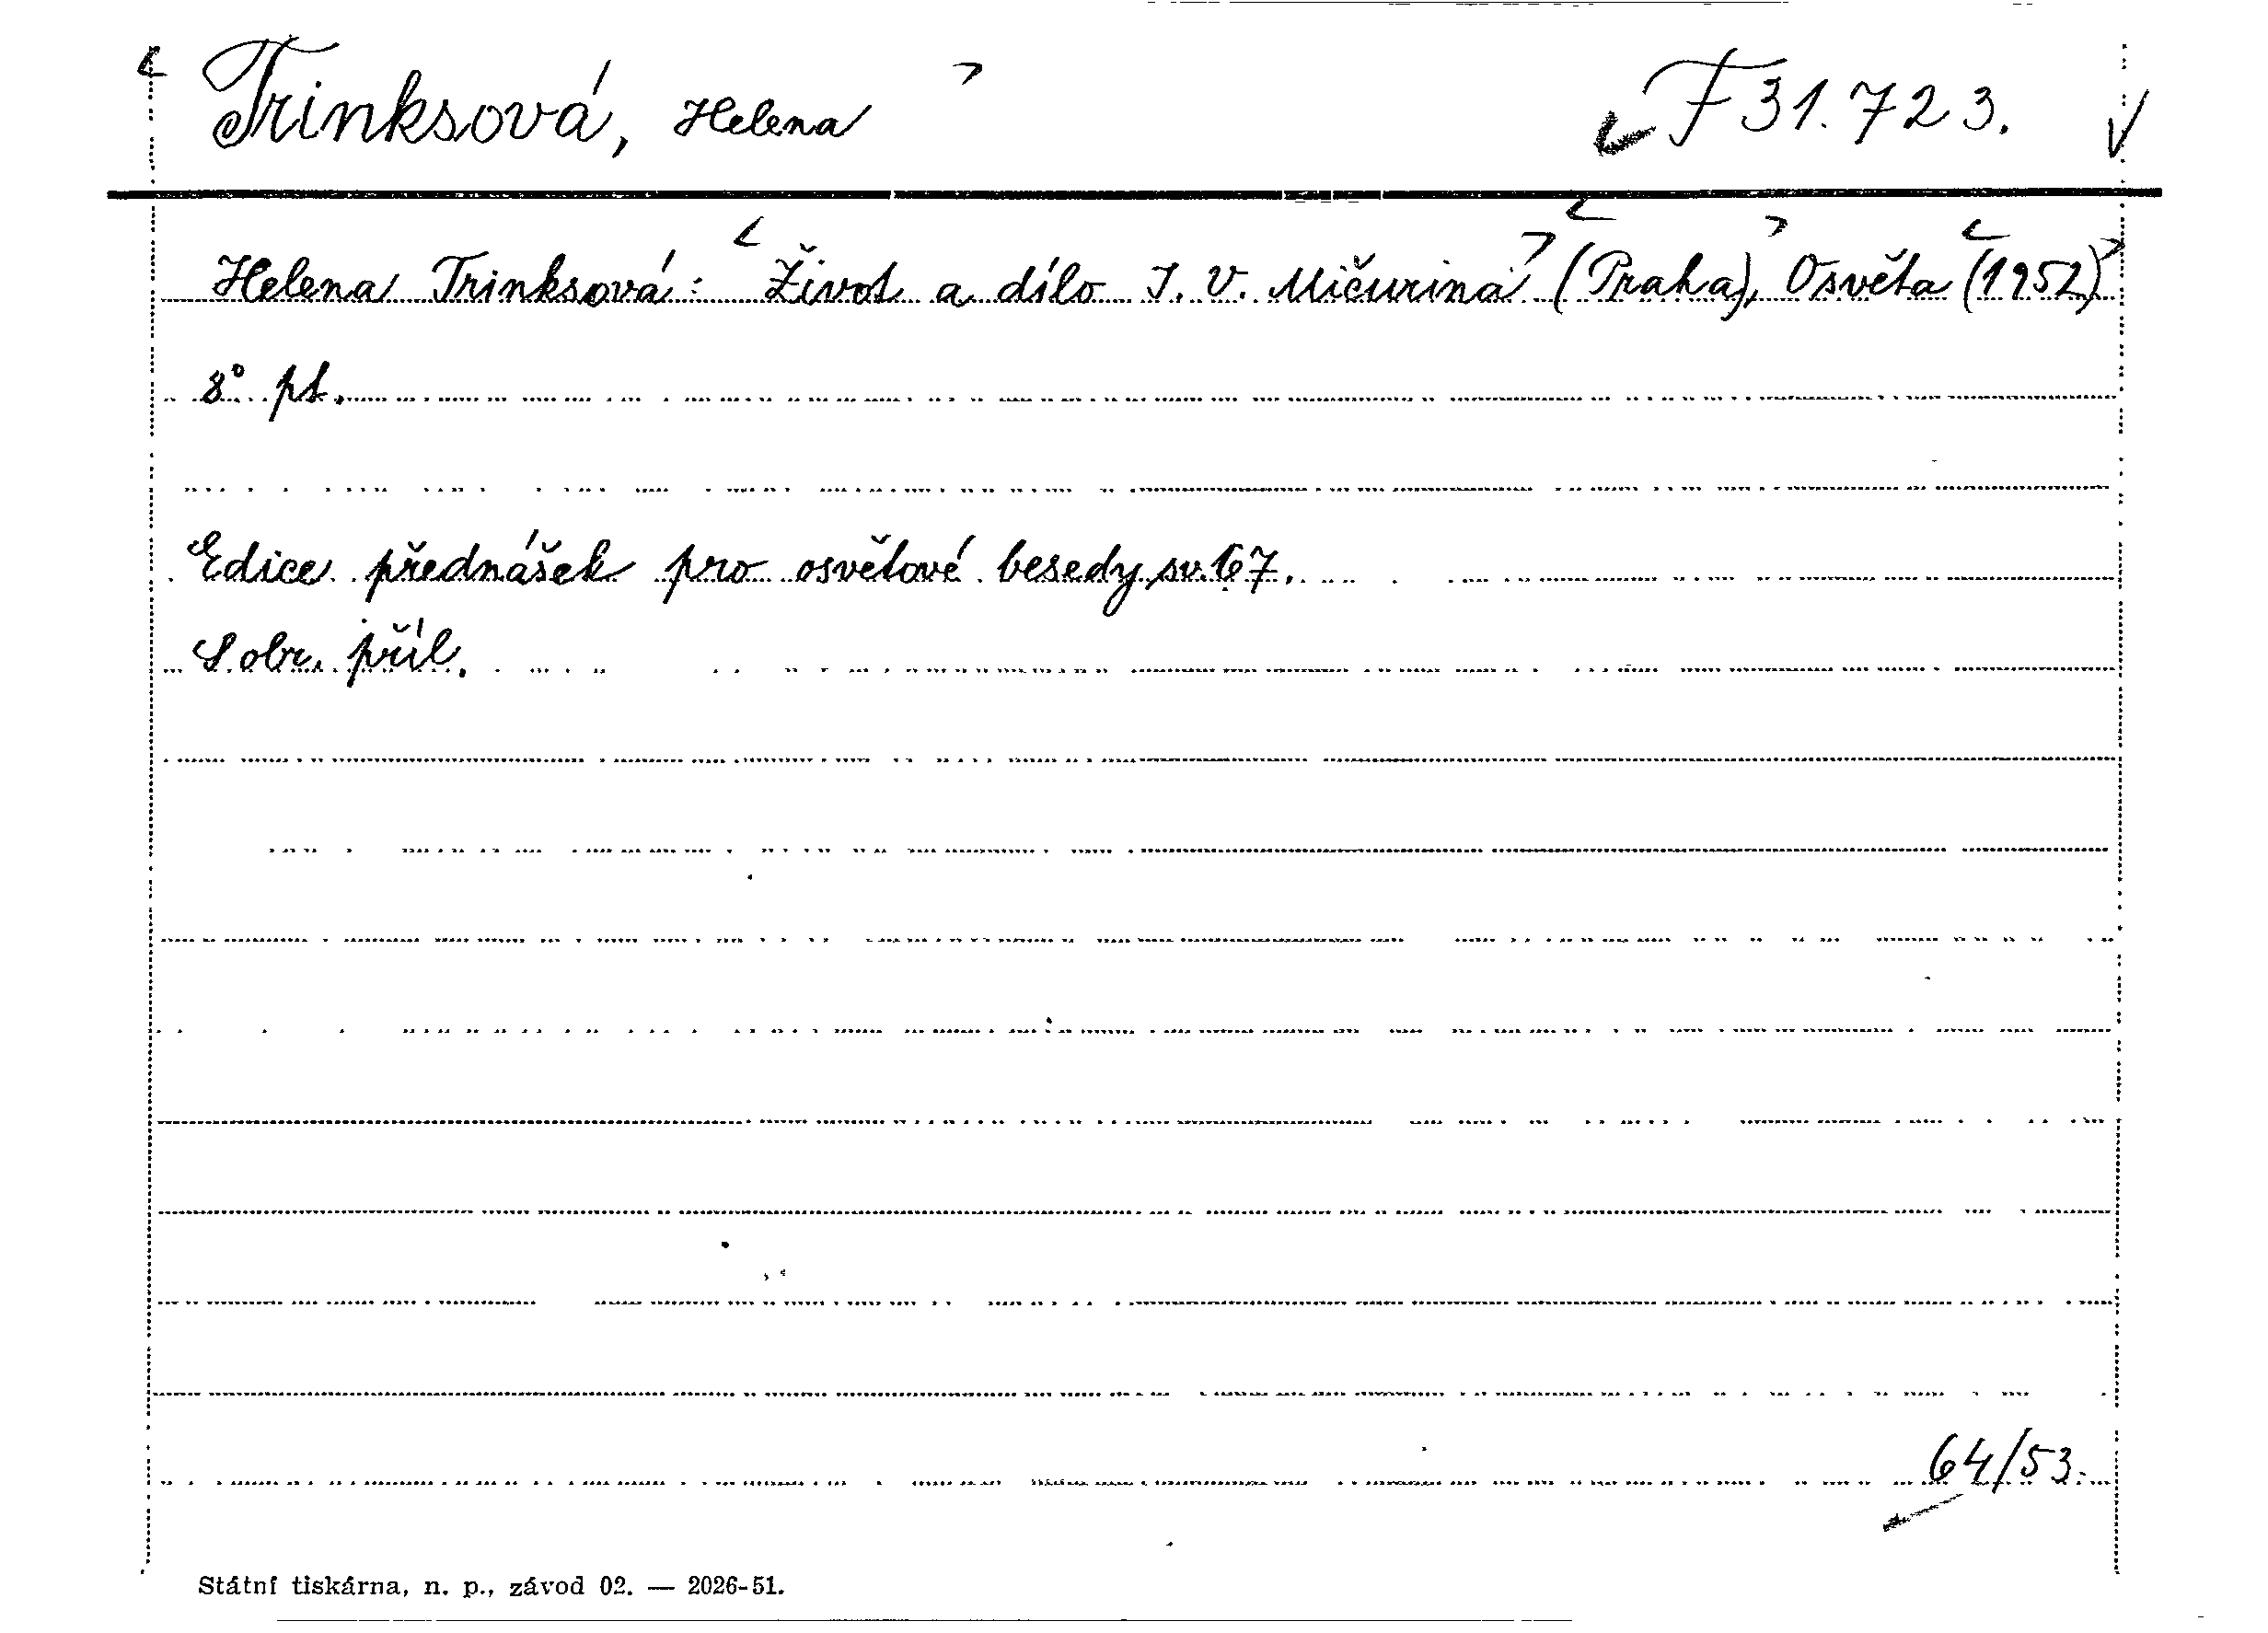 Trinksová, Helena F 31.723.
Helena Trinksová: Život a dílo I. V. Mičurina (Praha), Osvěta (1952)
8° pt.
Edice přednášek pro osvětové besedy sv. 67.
S obr. příl.
64/53.
Státní tiskárna, n. p., závod 02. — 2026-51.